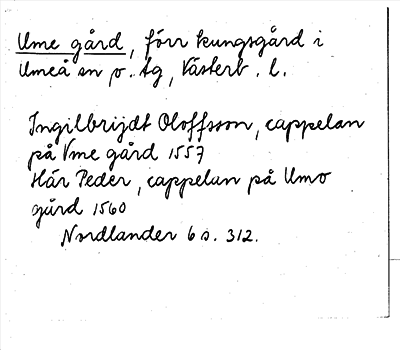 Ume gård, förr kungsgård i
Umeå sn o. tg, Västerb. l.
Ingilbrijdt Oloffsson, cappelan
på Vme gård 1557
Här Peder, cappelan på Umo
gård 1560
Nordlander 6 s. 312.